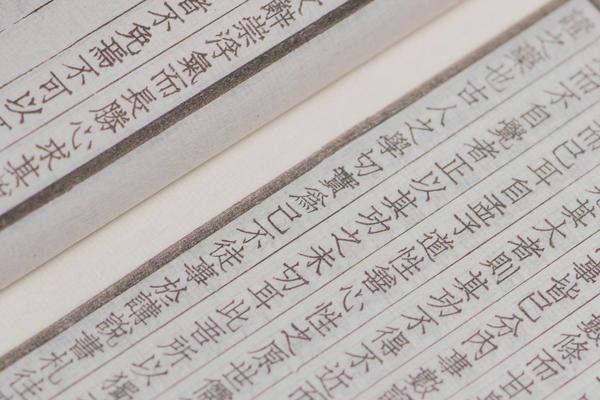 省不免焉不可以
辭崇浮氣而長勝心求其
之藥也古人之學切實為己不徒事於講說書札往
而不自覺者正以其功之未切耳此吾所以獨
而已耳自孟子道性善心性之原世儒
其大者則其功不得不近
事皆己分內事數
數條而甘